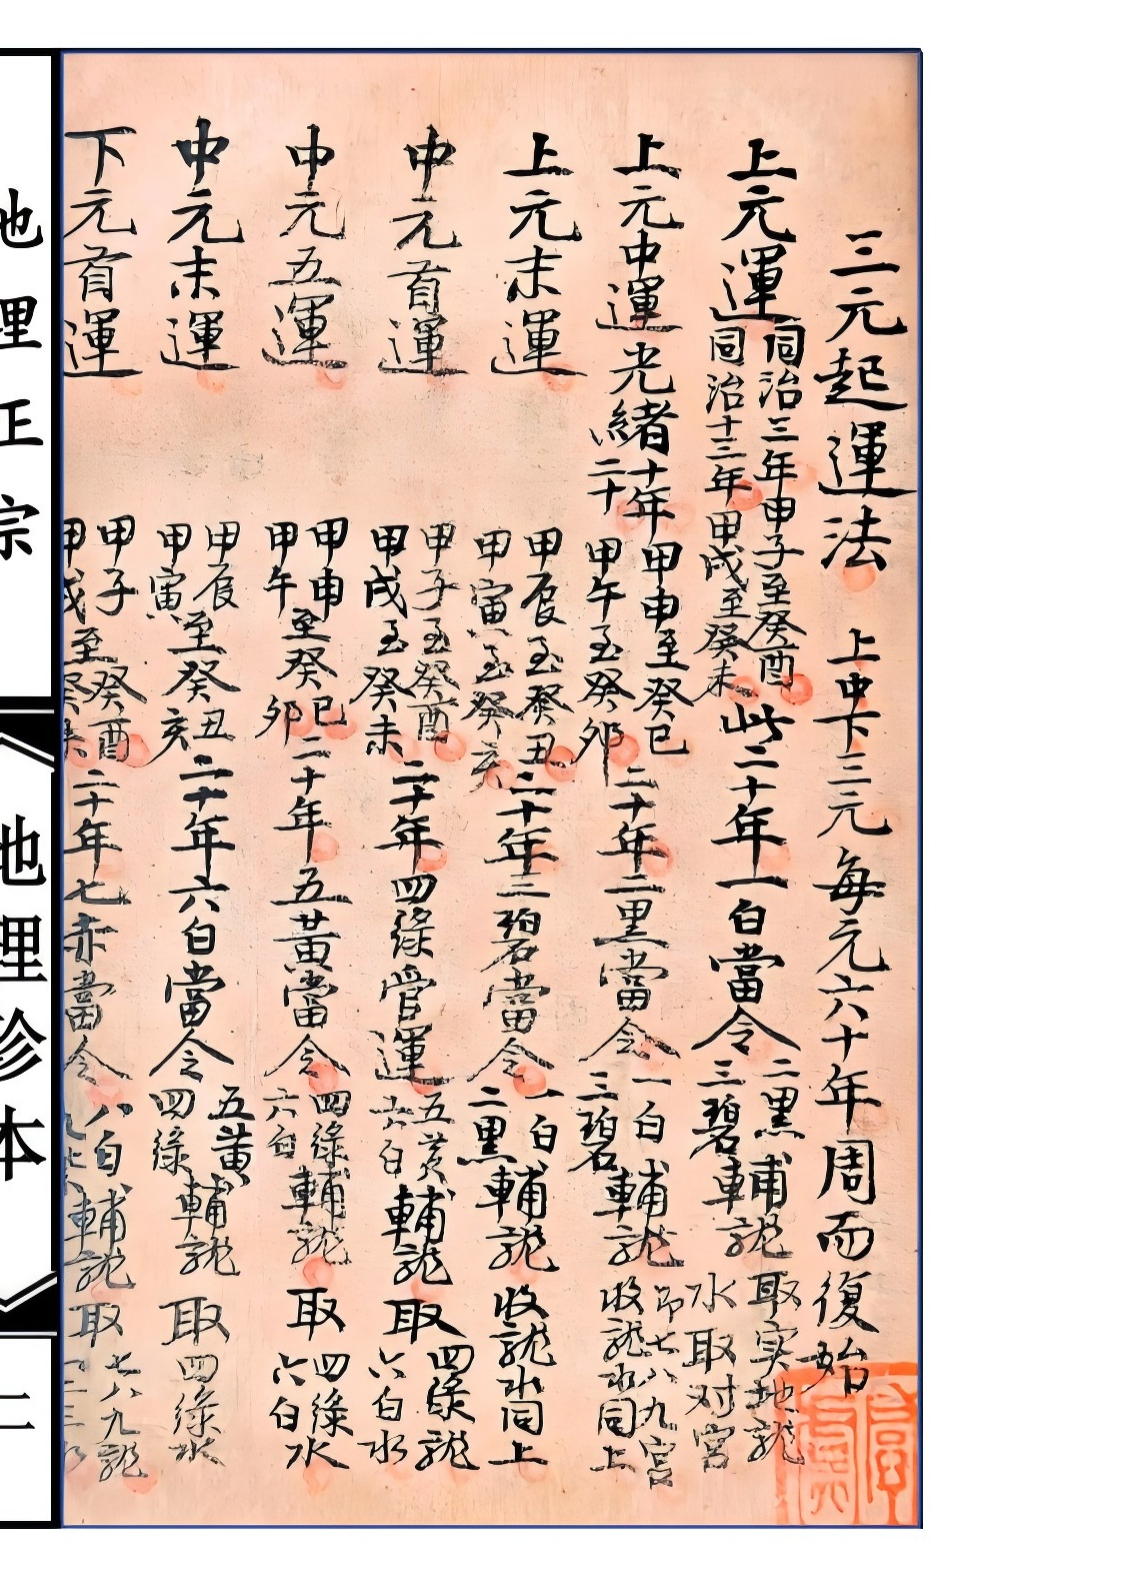 三元起運法 上中下三元每元六十年周而復始
上元運 同治三年甲子至癸酉 同治十三年甲戌至癸未 此二十年一白當令 二黑 三碧 輔龍 取实地龍 水取对宮
上元中運 光緒十年 二十 甲申至癸巳 甲午至癸卯 二十年二黑當令 一白 三碧 輔龍 即七八九宮 收龍水同上
上元末運 甲辰至癸丑 甲寅至癸亥 二十年三碧當令 一白 二黑 輔龍 收龍水同上
中元首運 甲子至癸酉 甲戌至癸未 二十年四綠管運 五黃 六白 輔龍 取 四綠龍 六白水
中元五運 甲申 甲午 至癸 巳 卯 二十年五黃當令 四綠 六白 輔龍 取 四綠 六白 水
中元末運 甲辰 甲寅 至癸 丑 亥 二十年六白當令 五黃 四綠 輔龍 取四綠水
下元首運 甲子 甲戌 至 癸酉 癸未 二十年七赤當令 八白 九 輔龍 取 七八九龍 一二三水
地理正宗
《地理珍本》
二